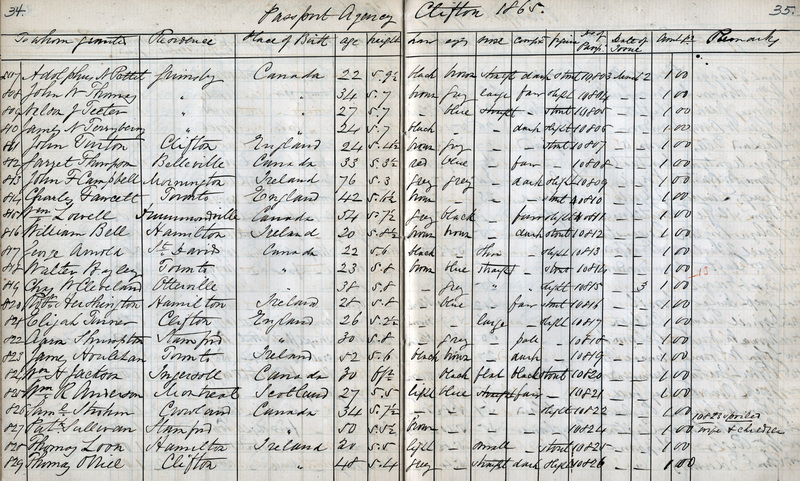 34. Passport Agency Clifton 1865. 35.
To whom granted Residence Place of Birth age height hair eyes nose comp. figure No of Passp. Date of Issue Amt pd Remarks
807 Adolphus N Pottet Grimsby Canada 22 5.9½ black brown straight dark stout 10803 2 1 00
808 John W Thomas " " 34 5.7 brown grey large fair slight 10804 – – 1 00
809 Nelson J Teeter " " 27 5.7 – blue straight – stout 10805 – – 1 00
810 James N " " 24 5.7 black – – dark slight 10806 – – 1 00
811 John Clifton England 24 5.4½ brown grey – – stout 10807 – – 1 00
812 Garret Thompson Belleville Canada 33 5.3½ red blue – fair – 10808 – – 1 00
813 John F Campbell Mornington Ireland 76 5.3 grey grey – dark slight 10809 – – 1 00
814 Charley Fawcett Toronto England 42 5.6½ brown – – – stout 10810 – – 1 00
815 Wm Lowell Drummondville Canada 54 5.7½ grey black – fair slight 10811 – – 1 00
816 William Bell Hamilton Ireland 20 5.8½ brown brown – dark stout 10812 – – 1 00
817 George Arnold St David Canada 22 5.6 black – thin – slight 10813 – – 1 00
818 Walter Bayley Toronto " 23 5.8 brown blue straight – stout 10814 – – 1 00 13
819 Chas W Cleveland Otterville " 38 5.8 – grey " – slight 10815 – 3 1 00
820 Hetherington Hamilton Ireland 28 5.8 – blue fair stout 10816 – – 1 00
821 Elijah Turner Clifton England 26 5.2½ – – large – slight 10817 – – 1 00
822 Aaron Thompson Stamford " 30 5.8 – grey – pale – 10818 – – 1 00
823 James Houlihan Toronto Ireland 52 5.6 black brown – dark – 10819 – – 1 00
824 Wm H Jackson Ingersoll Canada 30 black flat black stout 10820 – – 1 00
825 Wm R Anderson Montreal Scotland 27 5.5 light blue straight fair – 10821 – – 1 00
826 Saml Crowland Canada 34 5.7½ – – – – slight 10822 – – 1 00 10823 spoiled
827 Patk Sullivan Stamford " 50 5.5½ brown – – – – 10824 – – 1 00 wife & children
828 Thomas Loon Hamilton Ireland 20 5.5 light – small – stout 10825 – – 1 00
829 Thomas O'Niel Clifton – 48 5.4 grey – straight dark slight 10826 – – 1 00